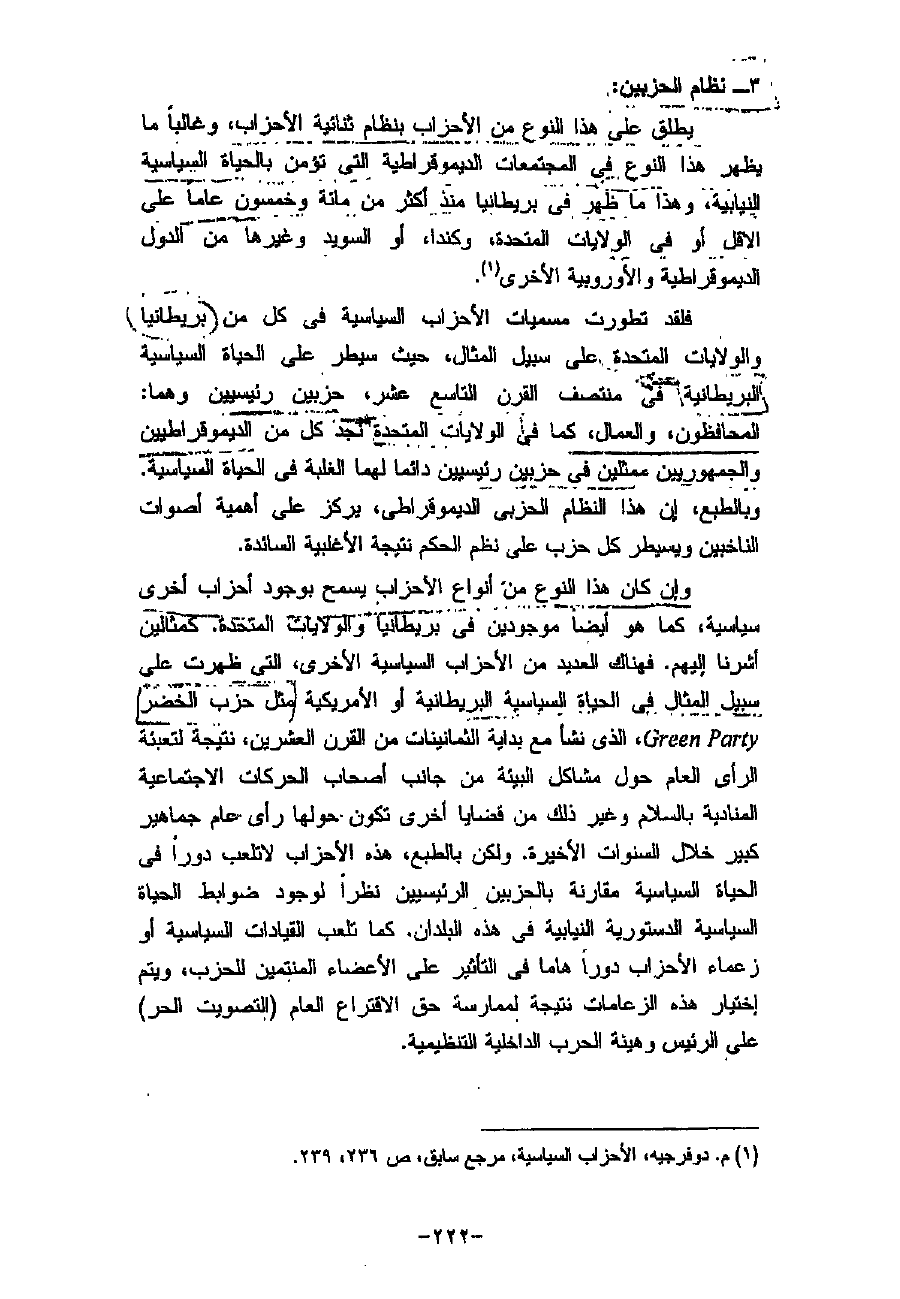 ٣ـ نظام الحزبين:
يطلق على هذا النوع من الأحزاب بنظام ثنائية الأحزاب، وغالباً ما
يظهر هذا النوع فى المجتمعات الديموقراطية التى تؤمن بالحياة السياسية
النيابية، وهذا ما ظهر فى بريطانيا منذ أكثر من مائة وخمسون عاماً على
الاقل أو فى الولايات المتحدة، وكندا، أو السويد وغيرها من الدول
الديموقراطية والأوروبية الأخرى(١).
فلقد تطورت مسميات الأحزاب السياسية فى كل من (بريطانيا)
والولايات المتحدة على سبيل المثال، حيث سيطر على الحياة السياسية
البريطانية فى منتصف القرن التاسع عشر، حزبين رئيسيين وهما:
المحافظون، والعمال، كما فى الولايات المتحدة نجد كل من الديموقراطيين
والجمهوريين ممثلين فى حزبين رئيسيين دائما لهما الغلبة فى الحياة السياسية.
وبالطبع، إن هذا النظام الحزبى الديموقراطى، يركز على أهمية أصوات
الناخبين ويسيطر كل حزب على نظم الحكم نتيجة الأغلبية السائدة.
وإن كان هذا النوع من أنواع الأحزاب يسمح بوجود أحزاب أخرى
سياسية، كما هو أيضاً موجودين فى بريطانيا والولايات المتحدة. كمثالين
أشرنا إليهم. فهناك العديد من الأحزاب السياسية الأخرى، التى ظهرت على
سبيل المثال فى الحياة السياسية البريطانية أو الأمريكية مثل حزب الخضر
Green Party، الذى نشأ مع بداية الثمانينات من القرن العشرين، نتيجة لتعبئة
الرأى العام حول مشاكل البيئة من جانب أصحاب الحركات الاجتماعية
المنادية بالسلام وغير ذلك من قضايا أخرى تكون حولها رأى عام جماهير
كبير خلال السنوات الأخيرة. ولكن بالطبع، هذه الأحزاب لاتلعب دوراً فى
الحياة السياسية مقارنة بالحزبين الرئيسيين نظراً لوجود ضوابط الحياة
السياسية الدستورية النيابية فى هذه البلدان. كما تلعب القيادات السياسية أو
زعماء الأحزاب دوراً هاما فى التأثير على الأعضاء المنتمين للحزب، ويتم
إختيار هذه الزعامات نتيجة لممارسة حق الاقتراع العام (التصويت الحر)
على الرئيس وهيئة الحرب الداخلية التنظيمية.
(١) م. دوفرجيه، الأحزاب السياسية، مرجع سابق، ص ٢٣٦، ٢٣٩.
-٢٢٢-